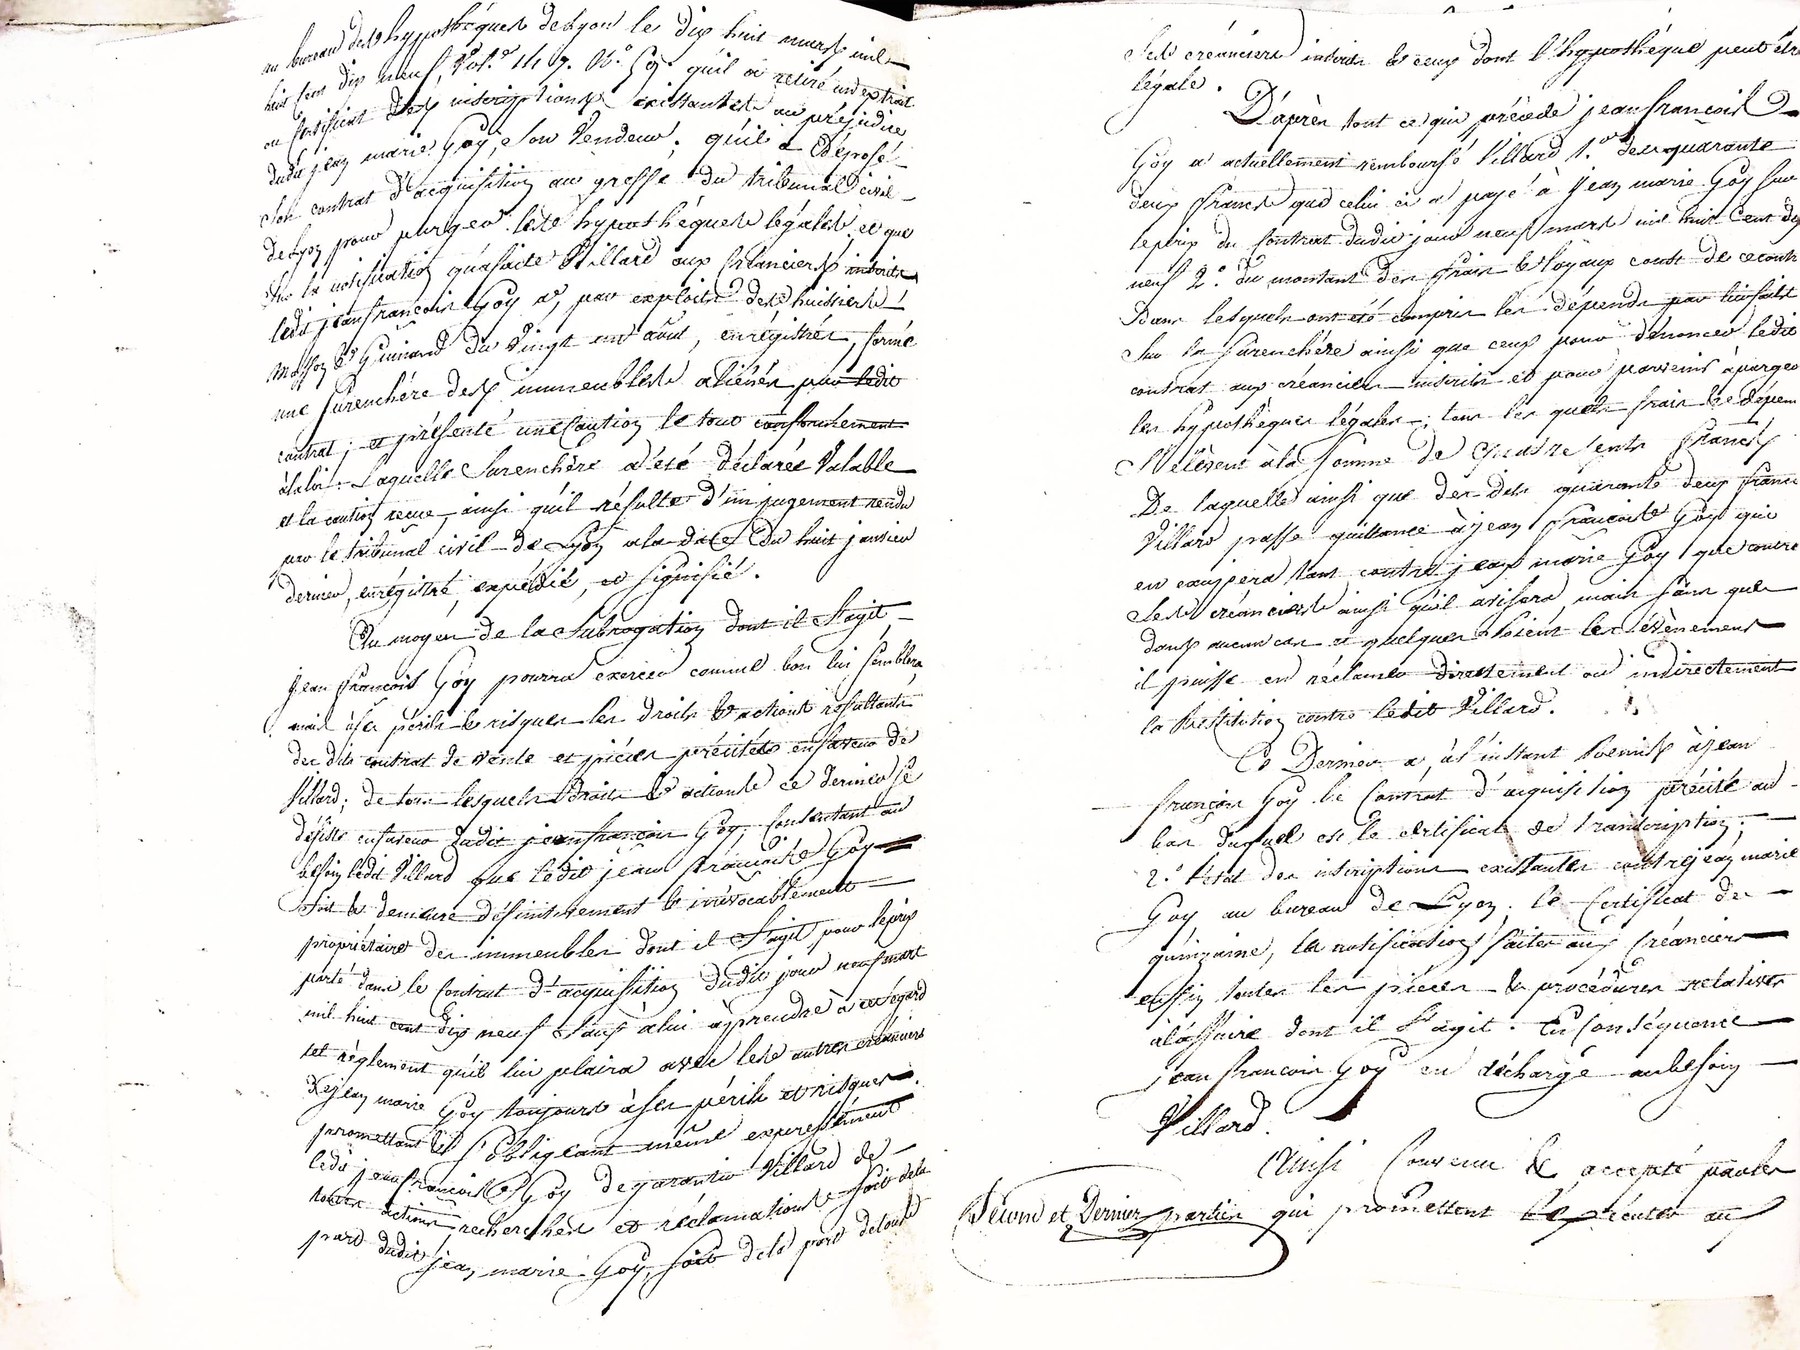 au bureau des hypothéques de Lyon le dix huit mars mil
huit cent dix neuf, vol.e 147. N.o qu'il a retiré un extrait
ou certificat des inscriptions existantes au préjudice
dudit jean marie Goy, son vendeur; qu'il a déposé
son contrat d'acquisition au greffe du tribunal civil
de Lyon pour purger les hypothéques légales, et que
sur la notification qu'a faite Villard aux créanciers inscrits
ledit jean françois Goy a, par exploits des huissiers
et Guinand du vingt un août, enregistrés, formé
une surenchère des immeubles aliénés par ledit
contrat; et présenté une caution le tout conformément
à la loi. Laquelle surenchère a été déclarée valable
et la caution reçue, ainsi qu'il résulte d'un jugement rendu
par le tribunal civil de Lyon à la date du huit janvier
dernier, enrégistré, expédié, et signifié.
Au moyen de la subrogation dont il s'agit,
jean françois Goy pourra exercer comme bon lui semblera,
mais à ses périls & risques les droits & actions résultants
des dits contrat de vente et pièces précitées en faveur de
Villard; de tous lesquels droits & actions ce dernier se
désiste en faveur dudit jean françois Goy, consentant au
besoin ledit Villard que ledit jean françois Goy
soit & demeure définitivement & irrévocablement
propriétaire des immeubles dont il s'agit pour le prix
porté dans le contrat d'acquisition dudit jour neuf mars
mil huit cent dix neuf sauf à lui à prendre à cet égard
tel règlement qu'il lui plaira avec les autres créanciers
de jean marie Goy toujours à ses périls et risques.
promettant & s'obligeant même expressément
ledit jean françois Goy de garantir Villard de
toutes actions, recherches et réclamations soit de la
part dudit jean marie Goy, soit de la part de tous
ses créanciers inscrits & ceux dont l'hypothéque peut être
légale.
D'après tout ce qui précède jean françois
Goy a actuellement remboursé Villard 1.o des quarante
deux francs que celui ci a payé à jean marie Goy sur
le prix du contrat dudit jour neuf mars mil huit cent dix
neuf 2.o du montant des frais & loyaux cousts de ce contrat
dans lesquels ont été compris les dépends par lui faits
sur la surenchère ainsi que ceux pour dénoncer ledit
contrat aux créanciers inscrits et pour parvenir à purger
les hypothèques légales; tous les quels frais & dépens
s'élèvent à la somme de quatre cents francs
De laquelle ainsi que des dits quarante deux francs
Villard passe quittance à jean françois Goy qui
en exipera tant contre jean marie Goy que contre
ses créanciers ainsi qu'il avisera, mais sans que
dans aucun cas et quelques soient les évènements
il puisse en réclamer directement ou indirectement
la restitution contre ledit Villard.
Ce Dernier a, à l'instant remis à jean
françois Goy le contrat d'acquisition précité au
bas duquel est le certificat de transcription;
2.o l'état des inscriptions existantes contre jean marie
Goy au bureau de Lyon. le certificat de
quinzaine, la notification faite aux créanciers
enfin toutes les pièces & procédures relatives
à l'affaire dont il s'agit. En conséquence
jean françois Goy en décharge au besoin
Villard.
Ainsi convenu & accepté par les
parties qui promettent l'exécuter aux
Second et Dernier